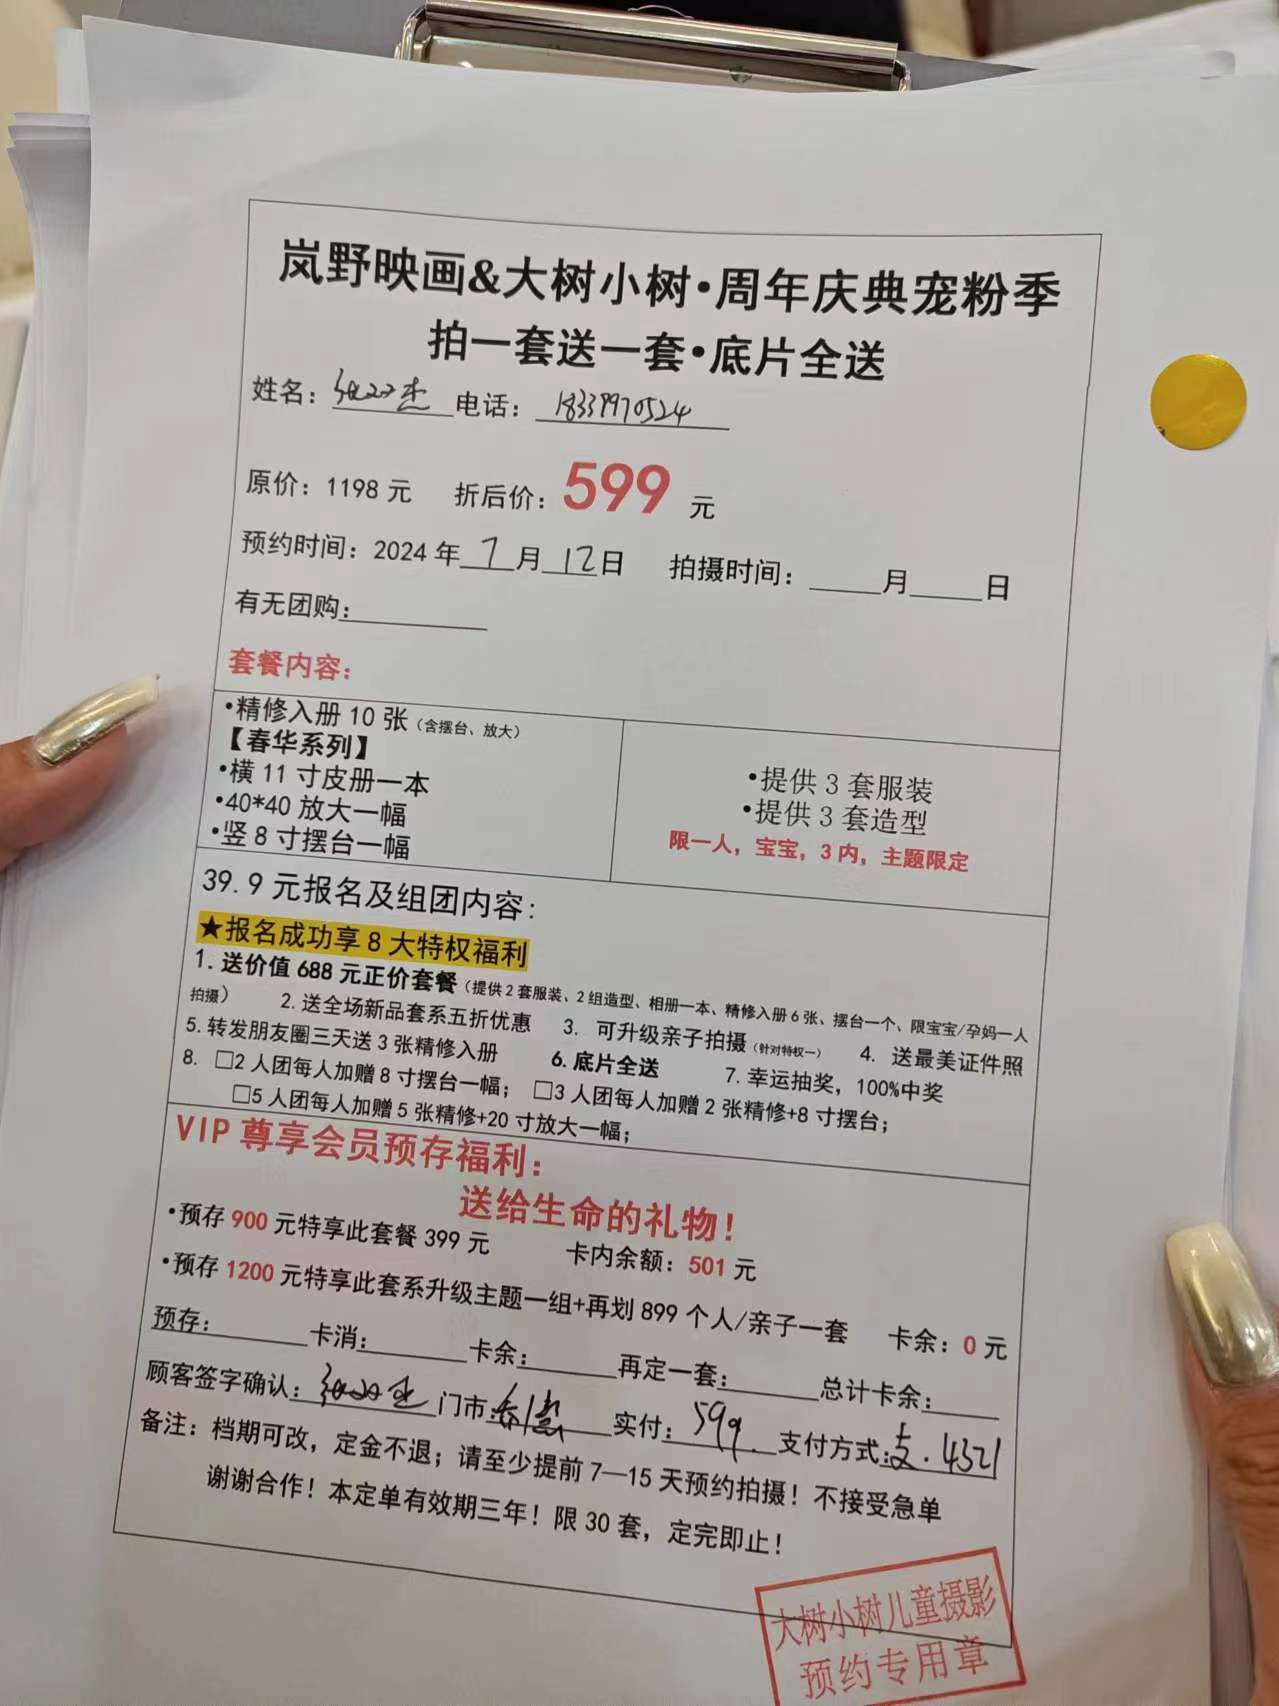 岚野映画&大树小树·周年庆典宠粉季
拍一套送一套·底片全送
姓名: 电话: 18339970524
原价: 1198 元 折后价: 599 元
预约时间: 2024 年 7 月 12 日 拍摄时间: ____月____日
有无团购:
套餐内容:
•精修入册 10 张（含摆台、放大）
【春华系列】
•横 11 寸皮册一本
•40*40 放大一幅
•竖 8 寸摆台一幅
•提供 3 套服装
•提供 3 套造型
限一人，宝宝，3 内，主题限定
39.9 元报名及组团内容:
★报名成功享 8 大特权福利
1. 送价值 688 元正价套餐（提供 2 套服装、2 组造型、相册一本、精修入册 6 张、摆台一个、限宝宝/孕妈一人
拍摄） 2. 送全场新品套系五折优惠 3. 可升级亲子拍摄（针对特权一） 4. 送最美证件照
5. 转发朋友圈三天送 3 张精修入册 6. 底片全送 7. 幸运抽奖，100%中奖
8. □2 人团每人加赠 8 寸摆台一幅； □3 人团每人加赠 2 张精修+8 寸摆台；
□5 人团每人加赠 5 张精修+20 寸放大一幅；
VIP 尊享会员预存福利:
送给生命的礼物！
•预存 900 元特享此套餐 399 元 卡内余额: 501 元
•预存 1200 元特享此套系升级主题一组+再划 899 个人/亲子一套 卡余: 0 元
预存:____ 卡消:____ 卡余:____ 再定一套:____ 总计卡余:____
顾客签字确认: 门市: 实付: 599 支付方式: 支.4321
备注: 档期可改，定金不退；请至少提前 7—15 天预约拍摄！不接受急单
谢谢合作！本定单有效期三年！限 30 套，定完即止！
大树小树儿童摄影
预约专用章